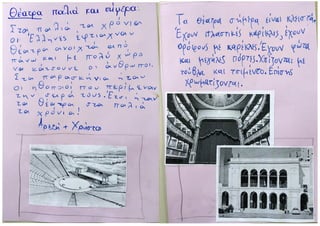 Θέατρα παλιά και σήμερα.
Στα παλιά τα χρόνια
οι Έλληνες έφτιαχναν
θέατρα ανοιχτά από
πάνω και με πολύ χώρο
να κάτσουνε οι άνθρωποι.
Στα παρασκήνια ήταν
οι ηθοποιοί που περίμεναν
την σειρά τους. Έτσι ήταν
τα θέατρα στα παλιά
τα χρόνια!
Αρετή + Χρύσα
Τα θέατρα σήμερα είναι κλειστά.
Έχουν πλαστικές καρέκλες, έχουν
ορόφους με καρέκλες. Έχουν φώτα
και μεγάλες πόρτες. Χτίζονται με
τούβλα και τσιμέντο. Επίσης
χρωματίζονται.